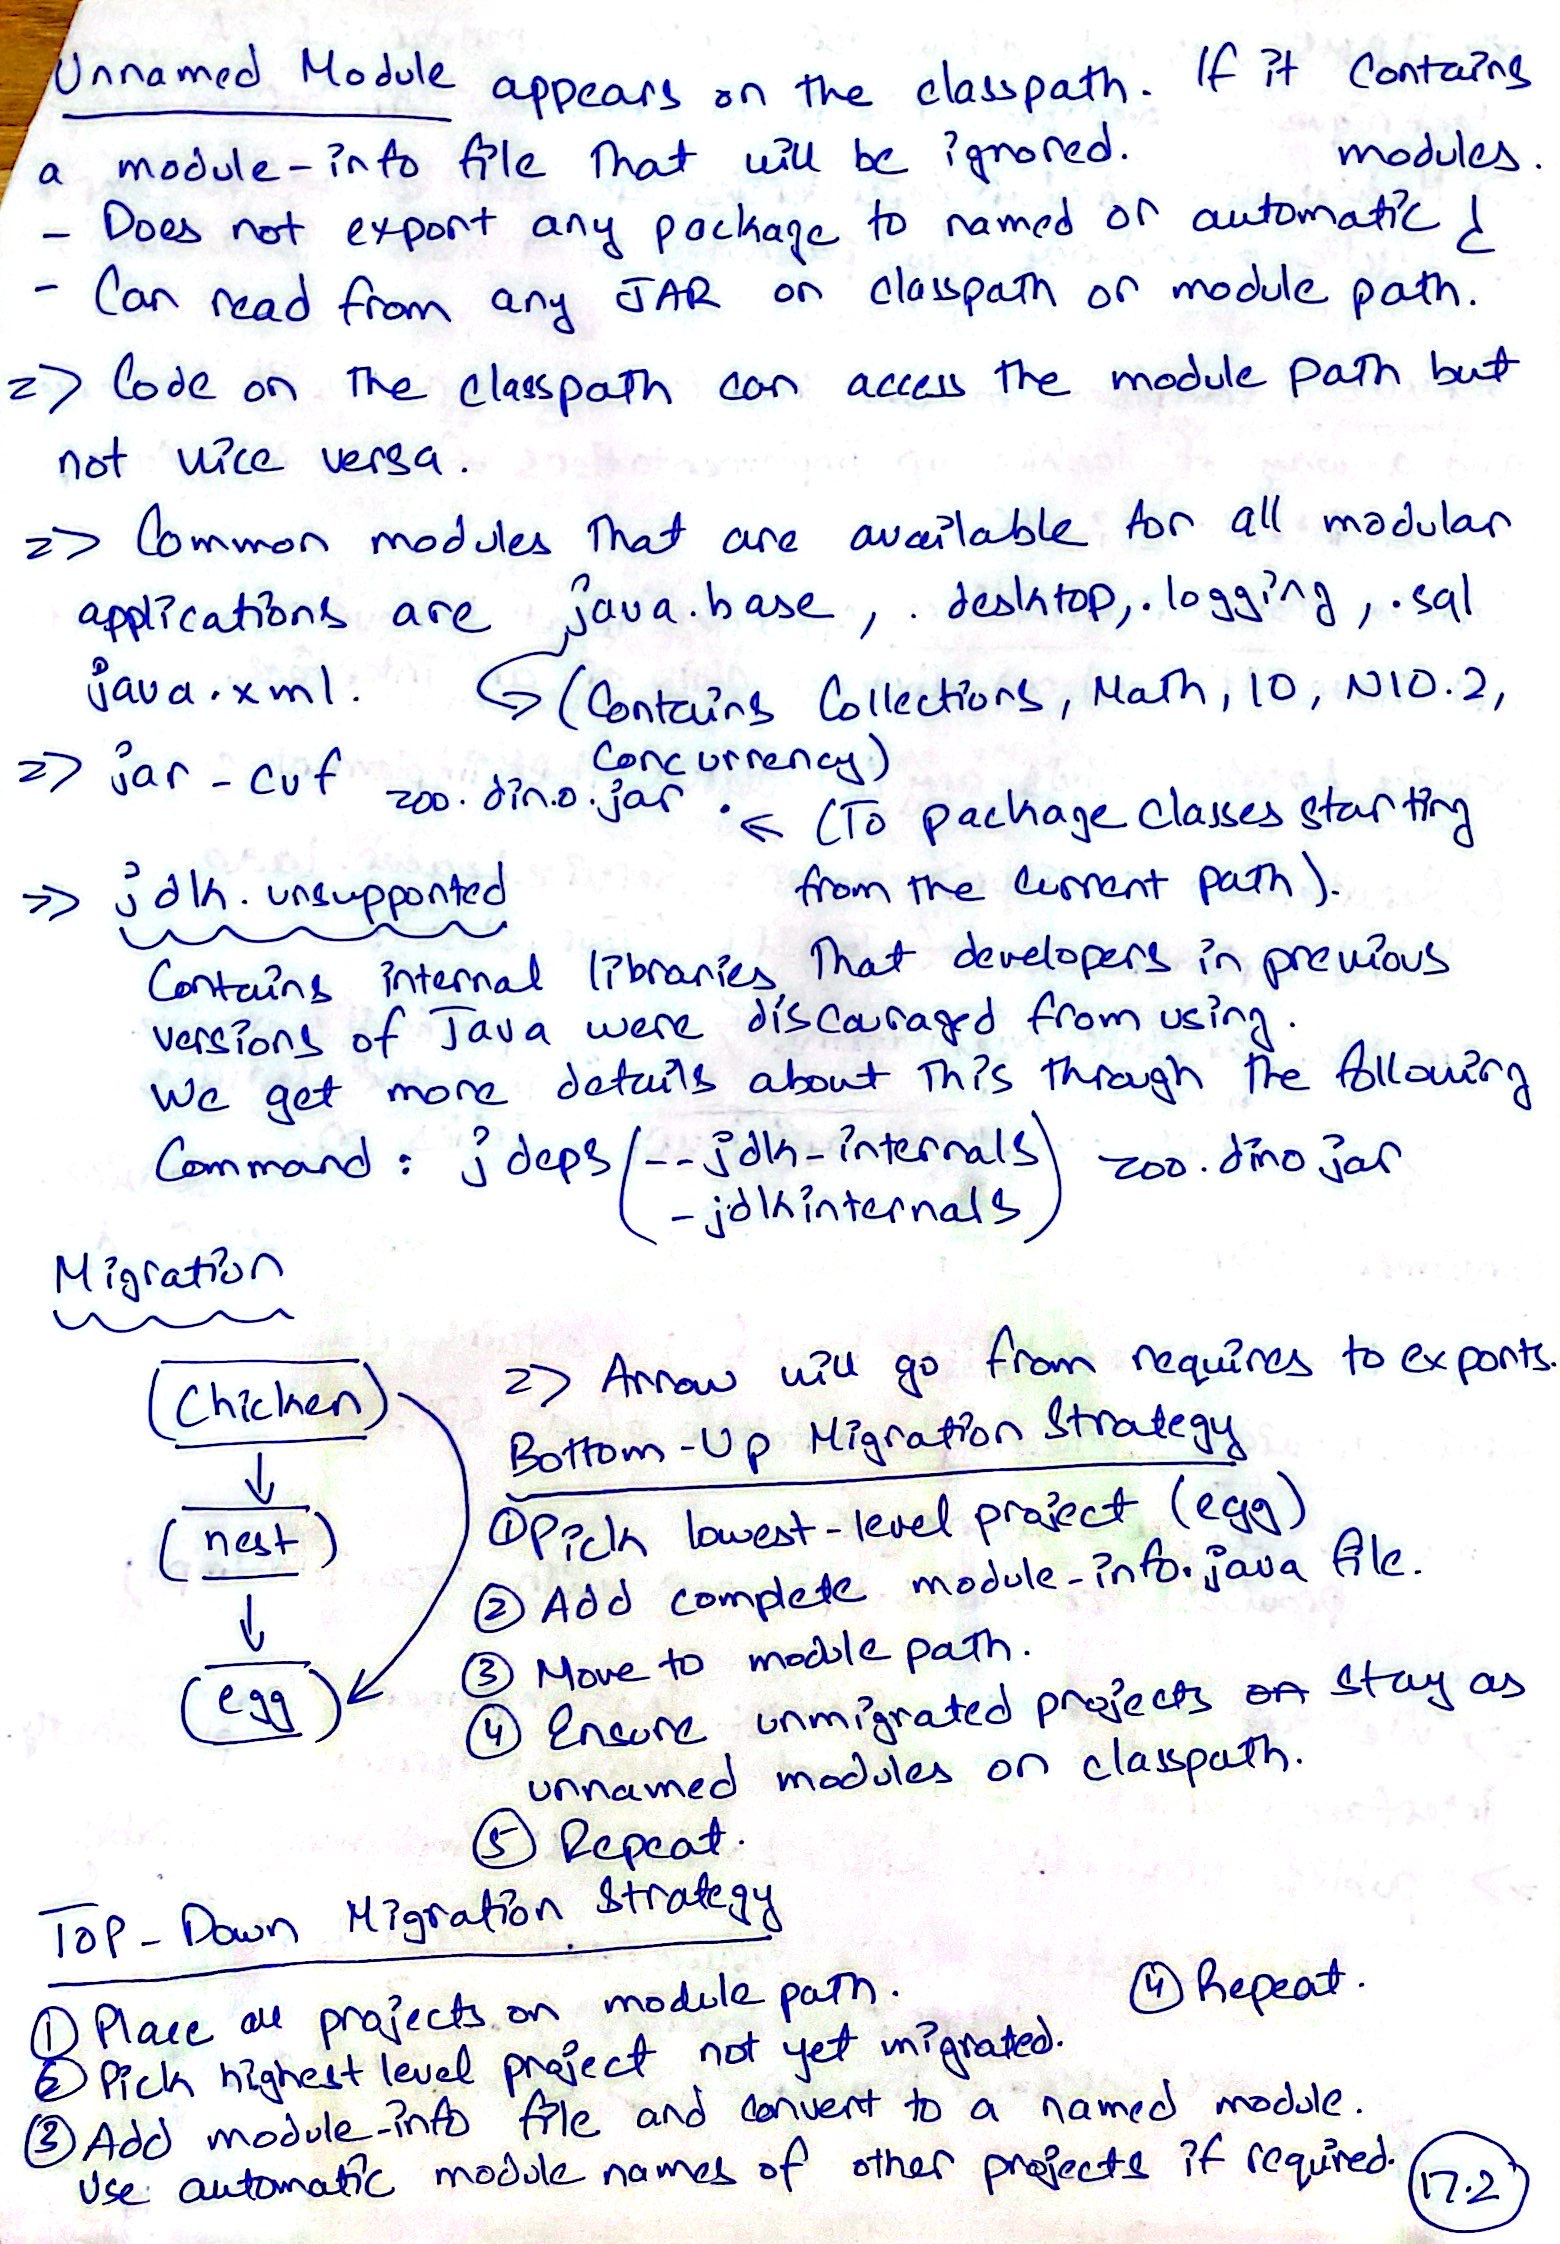 Unnamed Module appears on the classpath. If it contains
a module-info file that will be ignored.
- Does not export any package to named or automatic modules.
- Can read from any JAR on classpath or module path.
=> Code on the classpath can access the module path but
not vice versa.
=> Common modules that are available for all modular
applications are java.base, .desktop, .logging, .sql
java.xml. (Contains Collections, Math, IO, NIO.2,
Concurrency)
=> jar -cvf zoo.dino.jar . ← (To package classes starting
from the current path).
=> jdk.unsupported
Contains internal libraries that developers in previous
versions of Java were discouraged from using.
We get more details about this through the following
Command: jdeps (--jdk-internals) zoo.dino jar
-jdkinternals
Migration
(Chicken)
↓
(nest)
↓
(egg)
=> Arrow will go from requires to exports.
Bottom-Up Migration Strategy
① Pick lowest-level project (egg)
② Add complete module-info.java file.
③ Move to module path.
④ Ensure unmigrated projects stay as
unnamed modules on classpath.
⑤ Repeat.
Top-Down Migration Strategy
① Place all projects on module path.
② Pick highest level project not yet migrated.
③ Add module-info file and convert to a named module.
Use automatic module names of other projects if required.
④ Repeat.
17.2